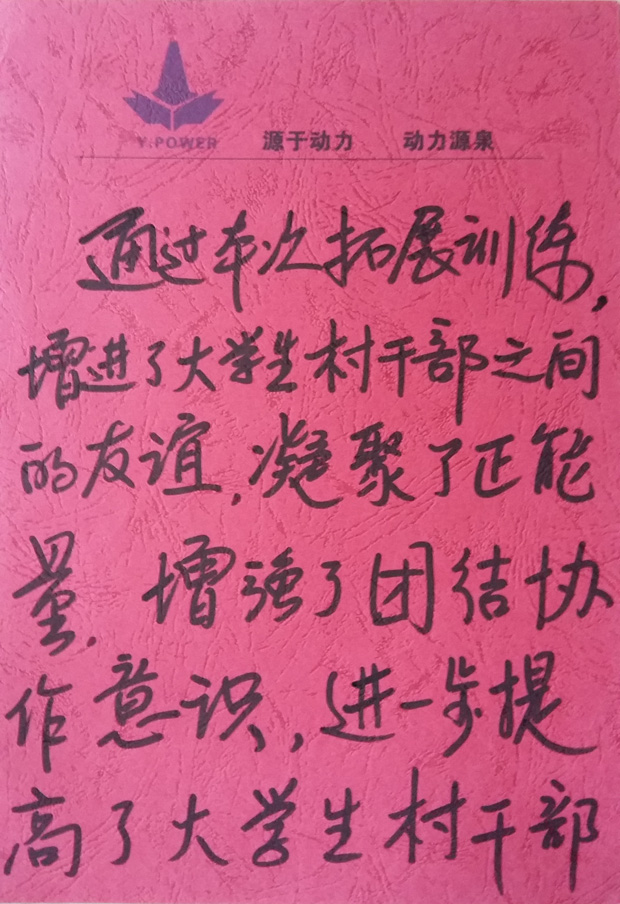 Y.POWER 源于动力 动力源泉
通过本次拓展训练,
增进了大学生村干部之间
的友谊,凝聚了正能
量,增强了团结协
作意识,进一步提
高了大学生村干部